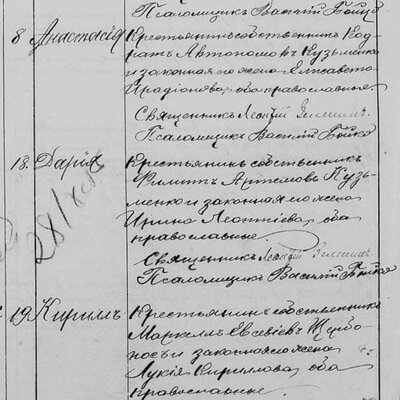 Псаломщикъ Василій Бойко
8 Анастасія Крестьянинъ собственник Код-
ратъ Автономовъ Кузьменко
и законная его жена Елисавета
Иродіонова, оба православные.
Священникъ
Псаломщикъ Василій Бойко
13. Дарія Крестьянин собственникъ
Филиппъ Артемовъ Кузь-
менко и законная его жена
Ирина Леонтіева, оба
православные.
Священникъ
Псаломщикъ Василій Бойко
19. Кириллъ Крестьянинъ собственникъ
Маркеллъ Евсевіевъ Щербо-
носъ и законная его жена
Лукія Кириллова, оба
православные.